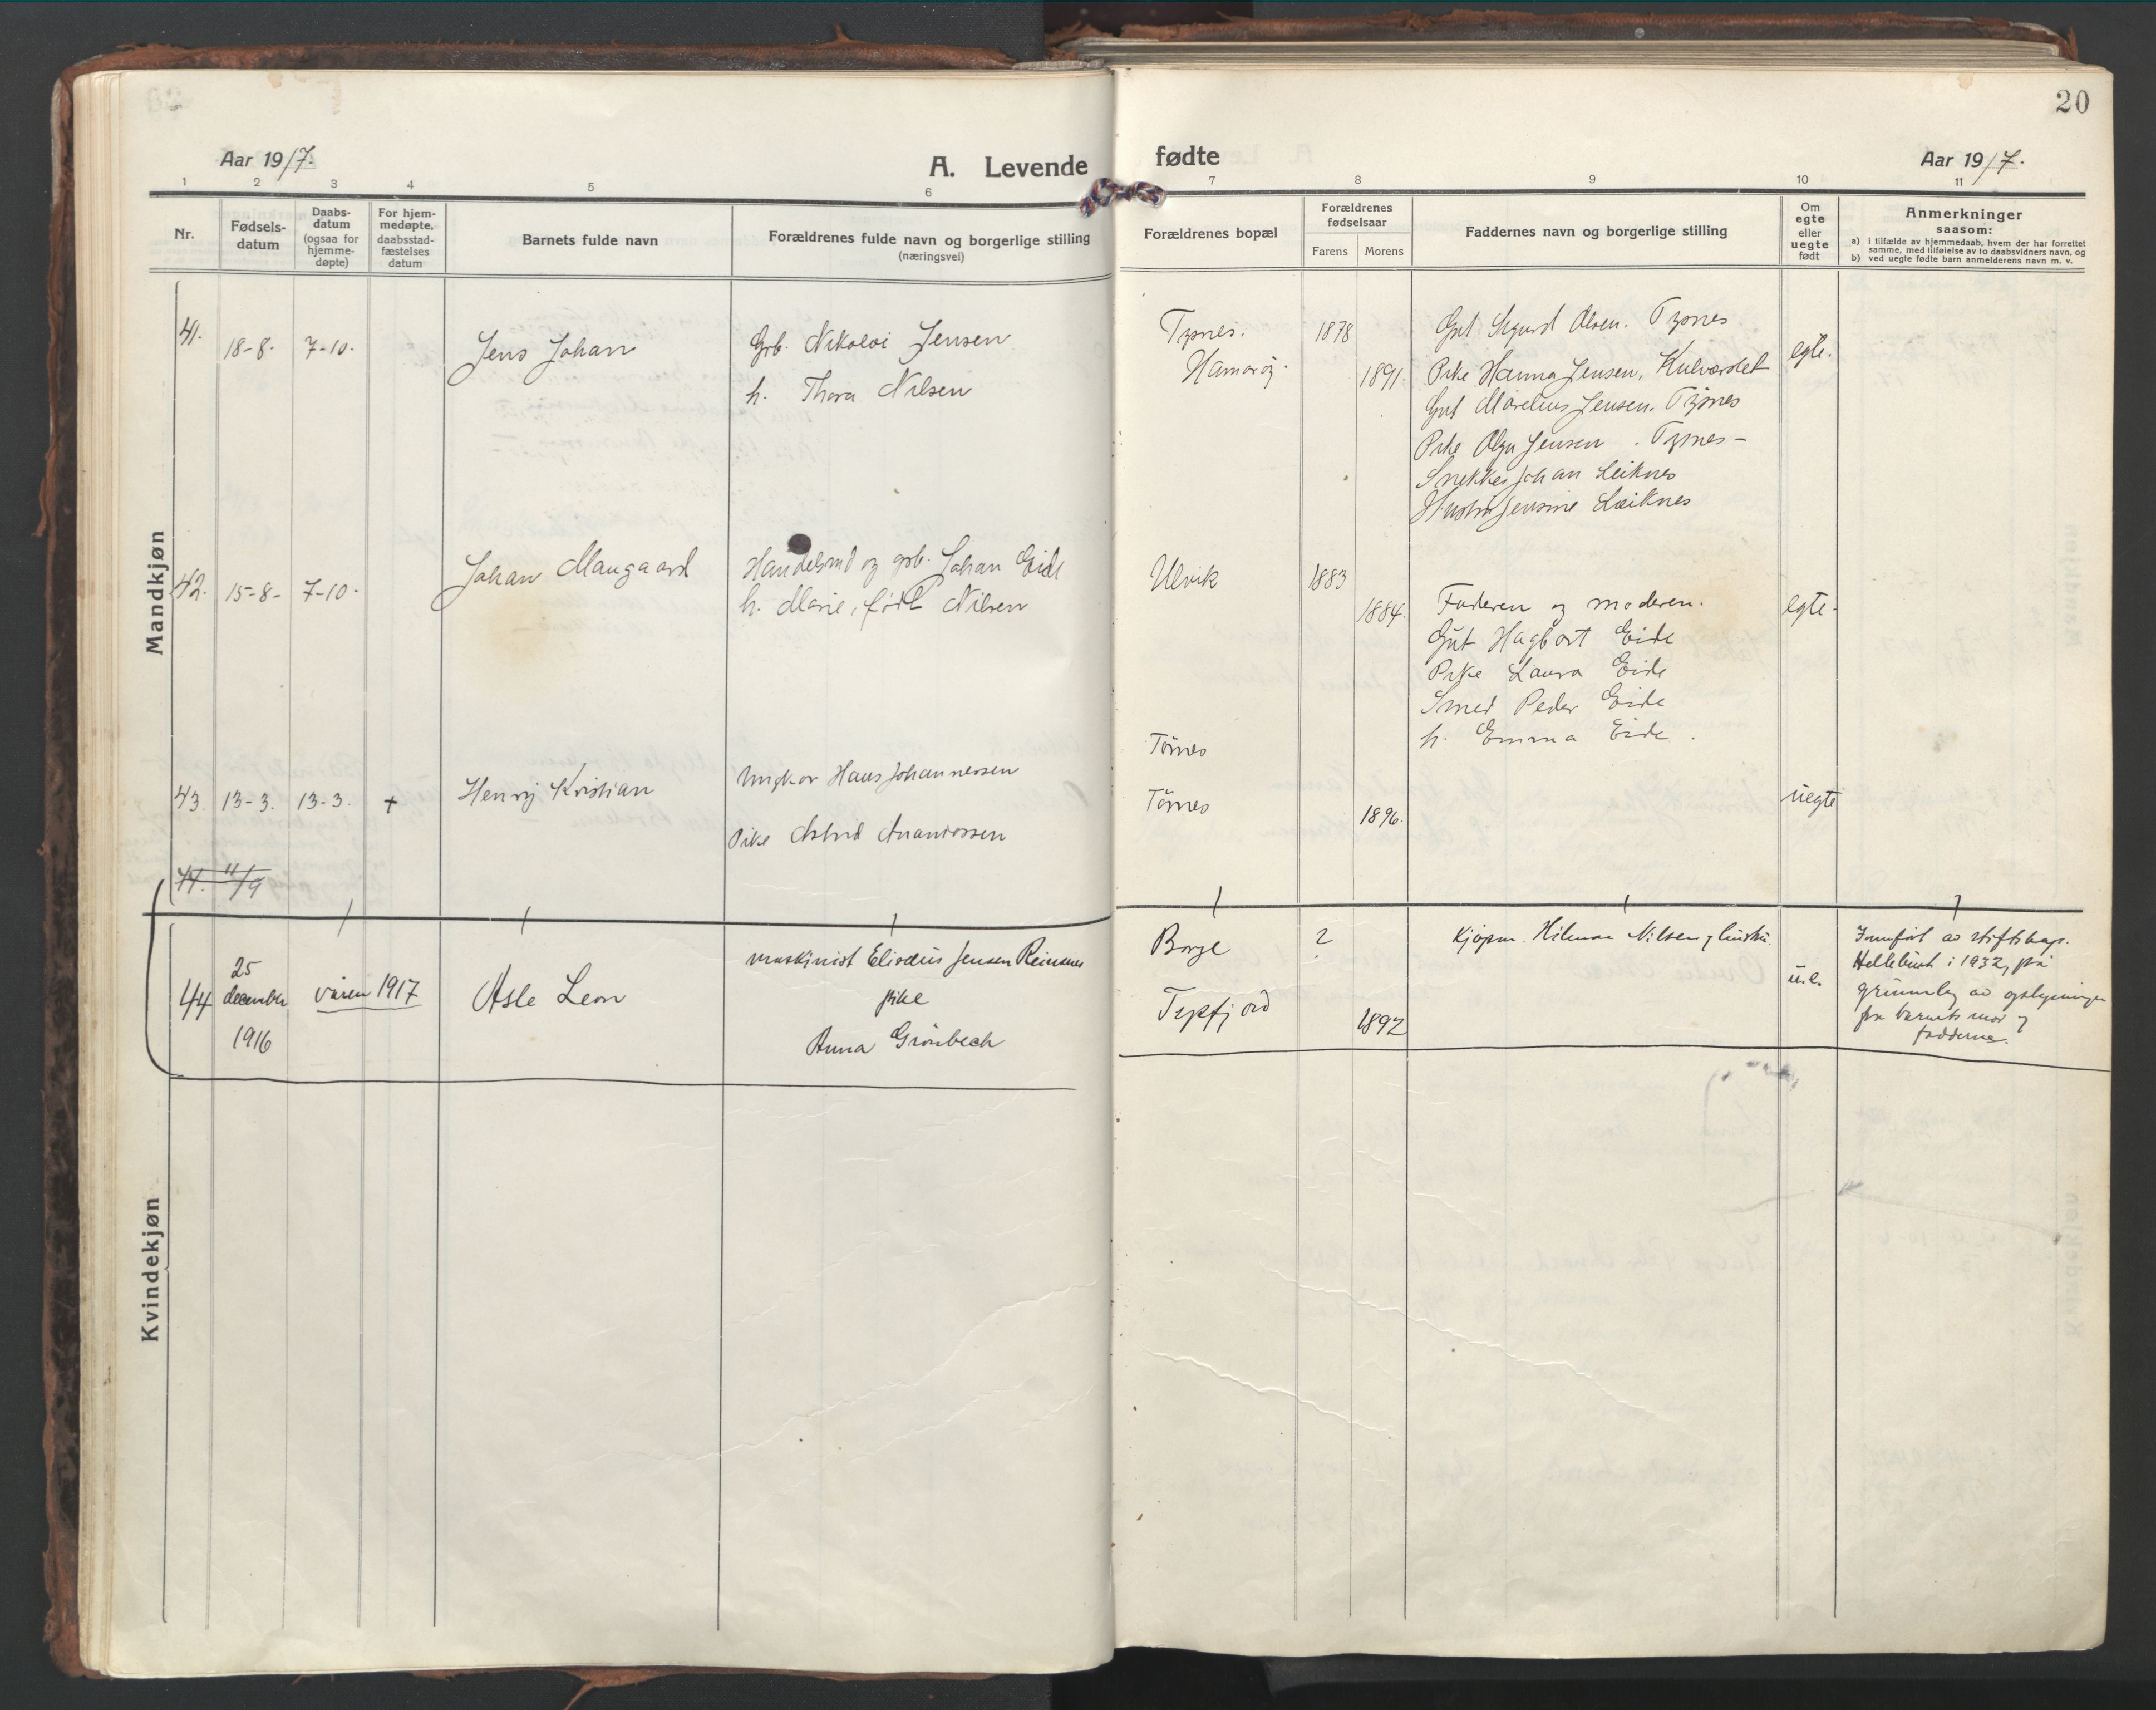 20
Aar 1917.
A. Levende fødte
Aar 1917.
1 2 3 4 5 6 7 8 9 10 11
Nr.
Fødsels-
datum
Daabs-
datum
(ogsaa for
hjemme-
døpte)
For hjem-
medøpte,
daabsstad-
fæstelses
datum
Barnets fulde navn
Forældrenes fulde navn og borgerlige stilling
(næringsvei)
Forældrenes bopæl
Forældrenes
fødselsaar
Farens Morens
Faddernes navn og borgerlige stilling
Om
egte
eller
uegte
født
Anmerkninger
saasom:
a) i tilfælde av hjemmedaab, hvem der har forrettet
samme, med tilføielse av to daabsvidners navn, og
b) ved uegte fødte barn anmelderens navn m. v.
Mandkjøn
41. 18-8. 7-10. Jens Johan
Grb. Nikolai Jensen
h. Thora Nilsen
Tysnes.
Hamarøy.
1878
1891.
Gut Sigurd Olsen. Tysnes
Pike Hanna Jensen, Kulvørslet
Gut Marelius Jensen. Tysnes
Pike Olga Jensen. Tysnes -
Snekker Johan Leiknes
Hustru Jensine Leiknes
egte.
42. 15-8- 7-10. Johan Maugaard
Handelsmd og grb. Johan Eide
h. Marie, født Nilsen
Ulvik
1883
1884.
Faderen og moderen.
Gut Hagbart Eide
Pike Laura Eide
Smed Peder Eide
h. Emma Eide.
egte.
43. 13-3. 13-3. + Henry Kristian
Ungkar Hans Johannessen
Pike Astrid Ananiassen
Tömes
Tömes
1896.
uegte
44. 11/9
44 25
december
1916
våren 1917
Asle Leon
maskinist Elisæus Jensen Reinsnes
pike
Anna Grönbech
Borge
Tepfjord
?
1892
Kjøpm. Hilmar Nilsen og hustru.
u.e.
Innført av stiftskap.
Hellebust i 1932, på
grunnlag av oplysninger
fra barnets mor og
fadderne.
Kvindekjøn